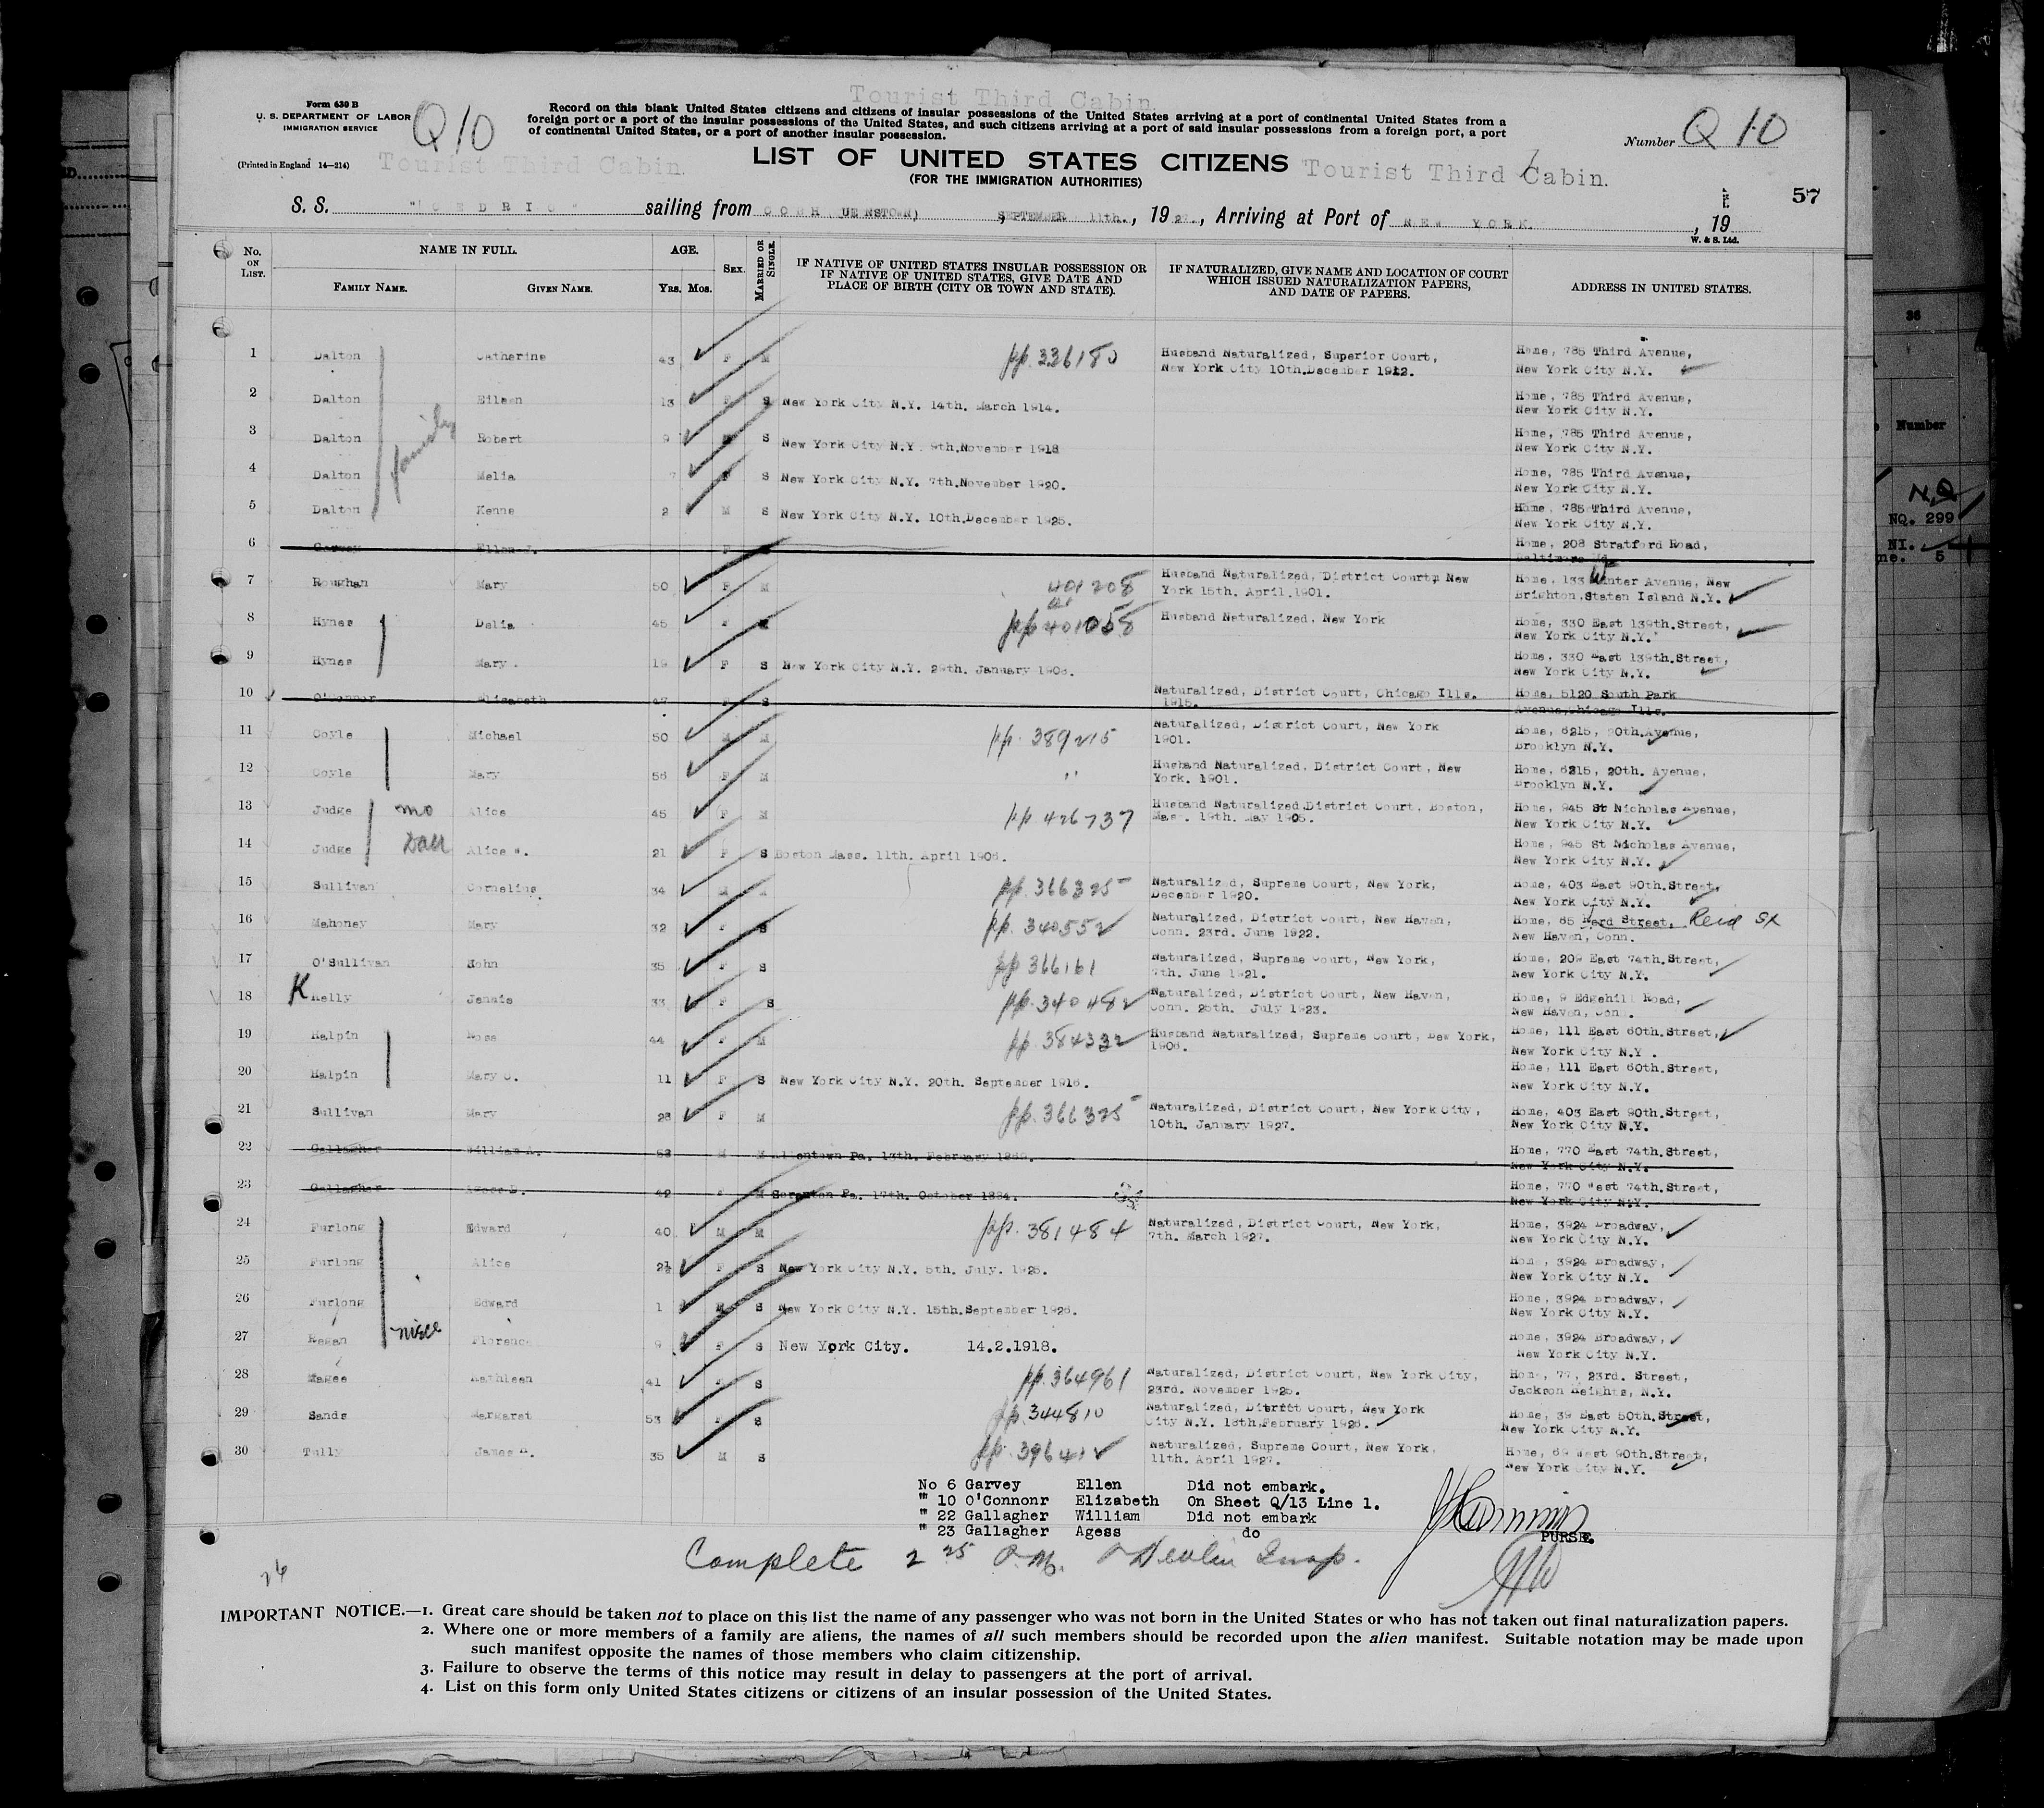 Tourist Third Cabin
Form 630 B
U. S. DEPARTMENT OF LABOR
IMMIGRATION SERVICE
Q10
Record on this blank United States citizens and citizens of insular possessions of the United States arriving at a port of continental United States from a
foreign port or a port of the insular possessions of the United States, and such citizens arriving at a port of said insular possessions from a foreign port, a port
of continental United States, or a port of another insular possession.
Number Q 10
(Printed in England 14—214)
Tourist Third Cabin.
LIST OF UNITED STATES CITIZENS
Tourist Third Cabin.
(FOR THE IMMIGRATION AUTHORITIES)
57
S. S. "CEDRIC" sailing from COBH SEPTEMBER 11th., 19 , Arriving at Port of NEW YORK. , 19
W. & S. Ltd.
No. ON LIST.
NAME IN FULL.
FAMILY NAME.
GIVEN NAME.
AGE.
YRS. MOS.
SEX.
MARRIED OR SINGLE.
IF NATIVE OF UNITED STATES INSULAR POSSESSION OR
IF NATIVE OF UNITED STATES, GIVE DATE AND
PLACE OF BIRTH (CITY OR TOWN AND STATE).
IF NATURALIZED, GIVE NAME AND LOCATION OF COURT
WHICH ISSUED NATURALIZATION PAPERS,
AND DATE OF PAPERS.
ADDRESS IN UNITED STATES.
family
1 Dalton Catherine 43 F M pp. 336180 Husband Naturalized, Superior Court, Home, 785 Third Avenue,
New York City 10th.December 1912. New York City N.Y.
2 Dalton Eileen 13 F S New York City N.Y. 14th. March 1914. Home, 785 Third Avenue,
New York City N.Y.
3 Dalton Robert 9 M S New York City N.Y. 9th.November 1918 Home, 785 Third Avenue,
New York City N.Y.
4 Dalton Melia 7 F S New York City N.Y. 7th.November 1920. Home, 785 Third Avenue,
New York City N.Y.
5 Dalton Kenne 2 M S New York City N.Y. 10th.December 1925. Home, 785 Third Avenue,
New York City N.Y.
6 Garvey Ellen J. F Home, 208 Stratford Road,
Baltimore Md.
7 Roughan Mary 50 F M 401208 Husband Naturalized, District Court, New Home, 133 Winter Avenue, New
York 15th. April.1901. Brighton.Staten Island N.Y.
8 Hynes Delia 45 F M pp 401058 Husband Naturalized, New York Home, 330 East 139th.Street,
New York City N.Y.
9 Hynes Mary. 19 F S New York City N.Y. 29th. January 1908. Home, 330 East 139th.Street,
New York City N.Y.
10 O'Connor Elizabeth 47 F S Naturalized, District Court, Chicago Ills. Home, 5120 South Park
1915. Avenue,Chicago Ills.
11 Coyle Michael 50 M M pp. 389215 Naturalized, District Court, New York Home, 6215, 20th.Avenue,
1901. Brooklyn N.Y.
12 Coyle Mary 56 F M " Husband Naturalized, District Court, New Home, 6215, 20th. Avenue,
York. 1901. Brooklyn N.Y.
13 Judge mo Alice 45 F M pp 426737 Husband Naturalized,District Court, Boston, Home, 945 St Nicholas Avenue,
Mass. 19th. May 1905. New York City N.Y.
14 Judge Dau Alice 21 F S Boston Mass. 11th. April 1906. Home, 945 St Nicholas Avenue,
New York City N.Y.
15 Sullivan Cornelius 34 M M pp. 366325 Naturalized, Supreme Court, New York, Home, 403 East 90th.Street,
December 1920. New York City N.Y.
16 Mahoney Mary 32 F S pp. 340552 Naturalized, District Court, New Haven, Home, 65 Street, Reid St
Conn. 23rd. June 1922. New Haven, Conn.
17 O'Sullivan John 35 F S pp 366161 Naturalized, Supreme Court, New York, Home, 209 East 74th.Street,
7th. June 1921. New York City N.Y.
18 K Kelly Jennie 33 F S pp. 340482 Naturalized, District Court, New Haven, Home, 9 Edgehill Road,
Conn. 25th. July 1923. New Haven, Conn.
19 Halpin Rose 44 F M pp. 384332 Husband Naturalized, Supreme Court, Dew York, Home, 111 East 60th.Street,
1906. New York City N.Y .
20 Halpin Mary C. 11 F S New York City N.Y. 20th. September 1916. Home, 111 East 60th.Street,
New York City N.Y.
21 Sullivan Mary 28 F M pp. 366325 Naturalized, District Court, New York City, Home, 403 East 90th.Street,
10th. January 1927. New York City N.Y.
22 Gallagher William A. 58 M M Allentown Pa. 13th. February 1869. Home, 770 East 74th.Street,
New York City N.Y.
23 Gallagher D. 42 F M Scranton Pa. 17th. October 1884. Home, 770 West 74th.Street,
New York City N.Y.
24 Furlong Edward 40 M M pp. 381484 Naturalized, District Court, New York, Home, 3924 Broadway,
7th. March 1927. New York City N.Y.
25 Furlong Alice 2½ F S New York City N.Y. 5th. July. 1925. Home, 3924 Broadway,
New York City N.Y.
26 Furlong Edward 1 M S New York City N.Y. 15th.September 1926. Home, 3924 Broadway,
New York City N.Y.
27 Regan niece Florence 9 F S New York City. 14.2.1918. Home, 3924 Broadway,
New York City N.Y.
28 Magee Kathleen 41 F S pp. 364961 Naturalized, District Court, New York City, Home, 77, 23rd. Street,
23rd. November 1925. Jackson Heights, N.Y.
29 Sands Margaret 53 F S pp. 344810 Naturalized, District Court, New York Home, 39 East 50th.Street,
City N.Y. 18th.February 1926. New York City N.Y.
30 Tully James 35 M S pp. 396412 Naturalized, Supreme Court, New York, Home, 69 West 90th.Street,
11th. April 1927. New York City N.Y.
No 6 Garvey Ellen Did not embark.
" 10 O'Connonr Elizabeth On Sheet Q/13 Line 1.
" 22 Gallagher William Did not embark
" 23 Gallagher Agess do
PURSE.
Complete 2 25 P.M. Devlin Insp.
IMPORTANT NOTICE.—1. Great care should be taken not to place on this list the name of any passenger who was not born in the United States or who has not taken out final naturalization papers.
2. Where one or more members of a family are aliens, the names of all such members should be recorded upon the alien manifest. Suitable notation may be made upon
such manifest opposite the names of those members who claim citizenship.
3. Failure to observe the terms of this notice may result in delay to passengers at the port of arrival.
4. List on this form only United States citizens or citizens of an insular possession of the United States.
36
Number
N.Q
NQ. 299
NI.
5